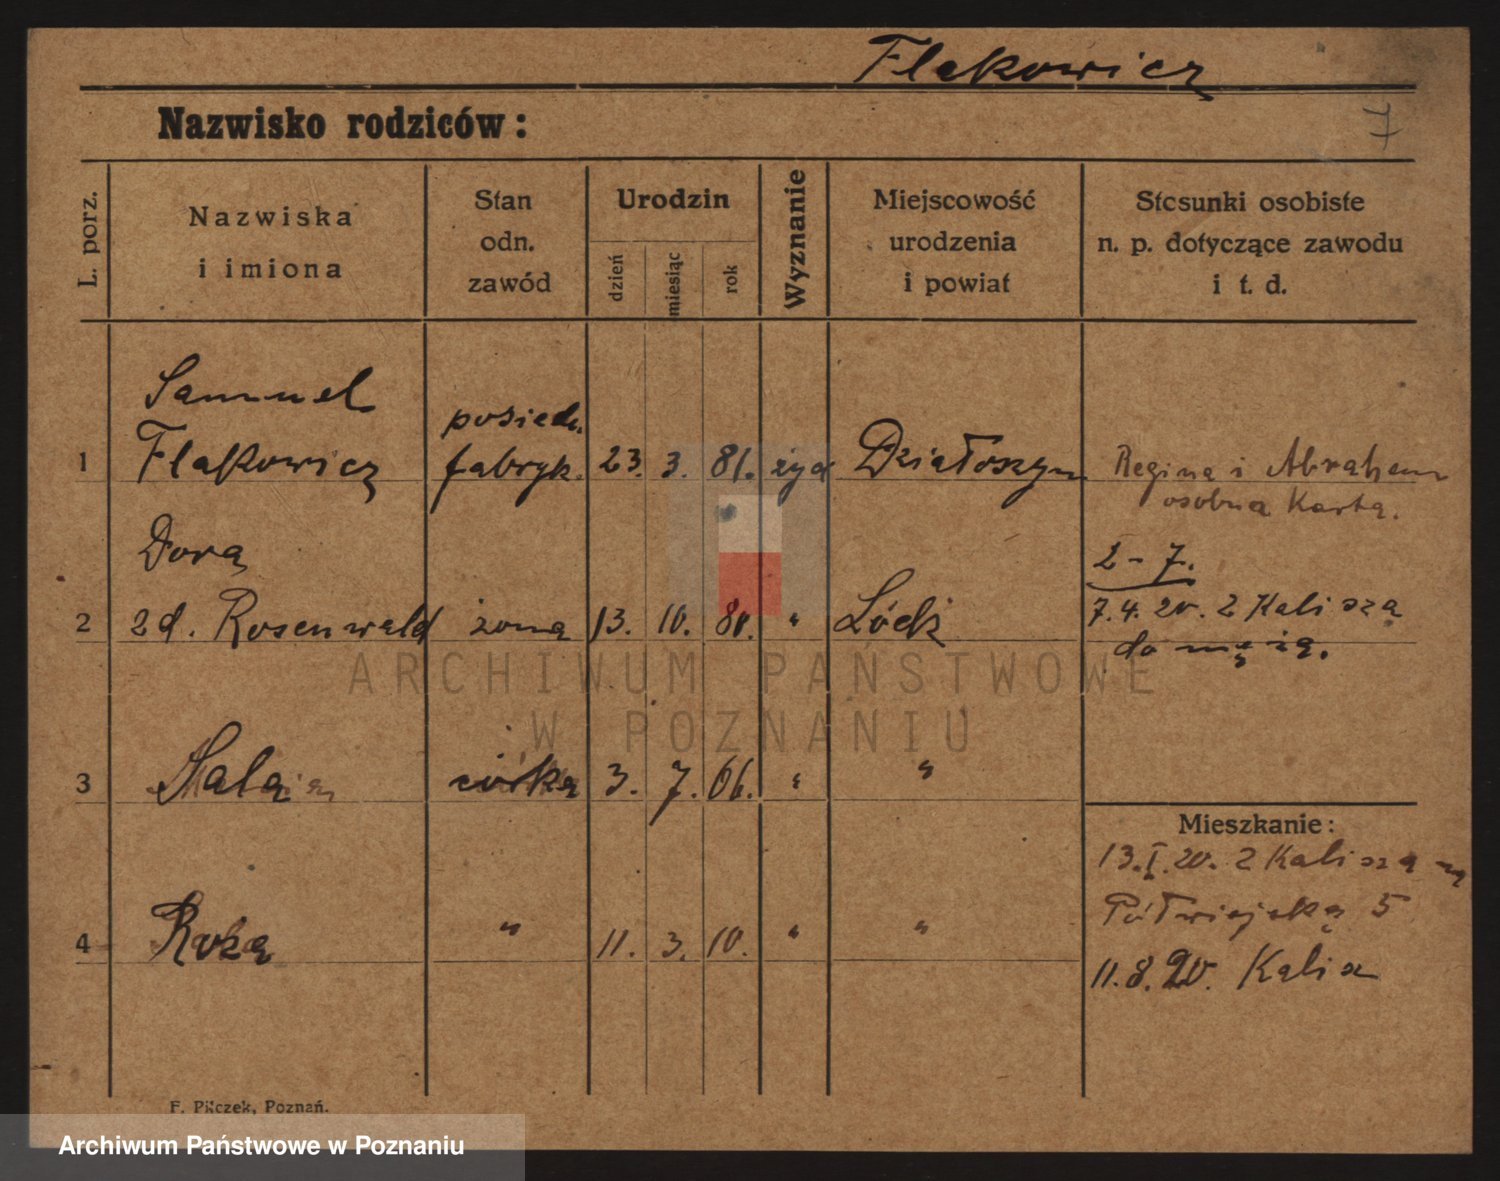 Flakowicz
Nazwisko rodziców:
7
L. porz.
Nazwiska
i imiona
Stan
odn.
zawód
Urodzin
dzień
miesiąc
rok
Wyznanie
Miejscowość
urodzenia
i powiat
Stosunki osobiste
n. p. dotyczące zawodu
i t. d.
Samuel
posiedz.
1 Flakowicz fabryk. 23. 3. 81. żyd Działoszyn Regina i Abraham
osobna Karta.
Dora
2-7.
2 zd. Rosenwald żona 13. 10. 80. " Łódź 7.4.20. z Kalisza
do męża.
3 Sala córka 3. 7. 06. " "
Mieszkanie:
13.I.20. z Kalisza na
Półwiejską 5
4 Roża " 11. 3. 10. " "
11.8.20. Kalisz
F. Pilczek, Poznań.
ARCHIWUM PAŃSTWOWE
W POZNANIU
Archiwum Państwowe w Poznaniu